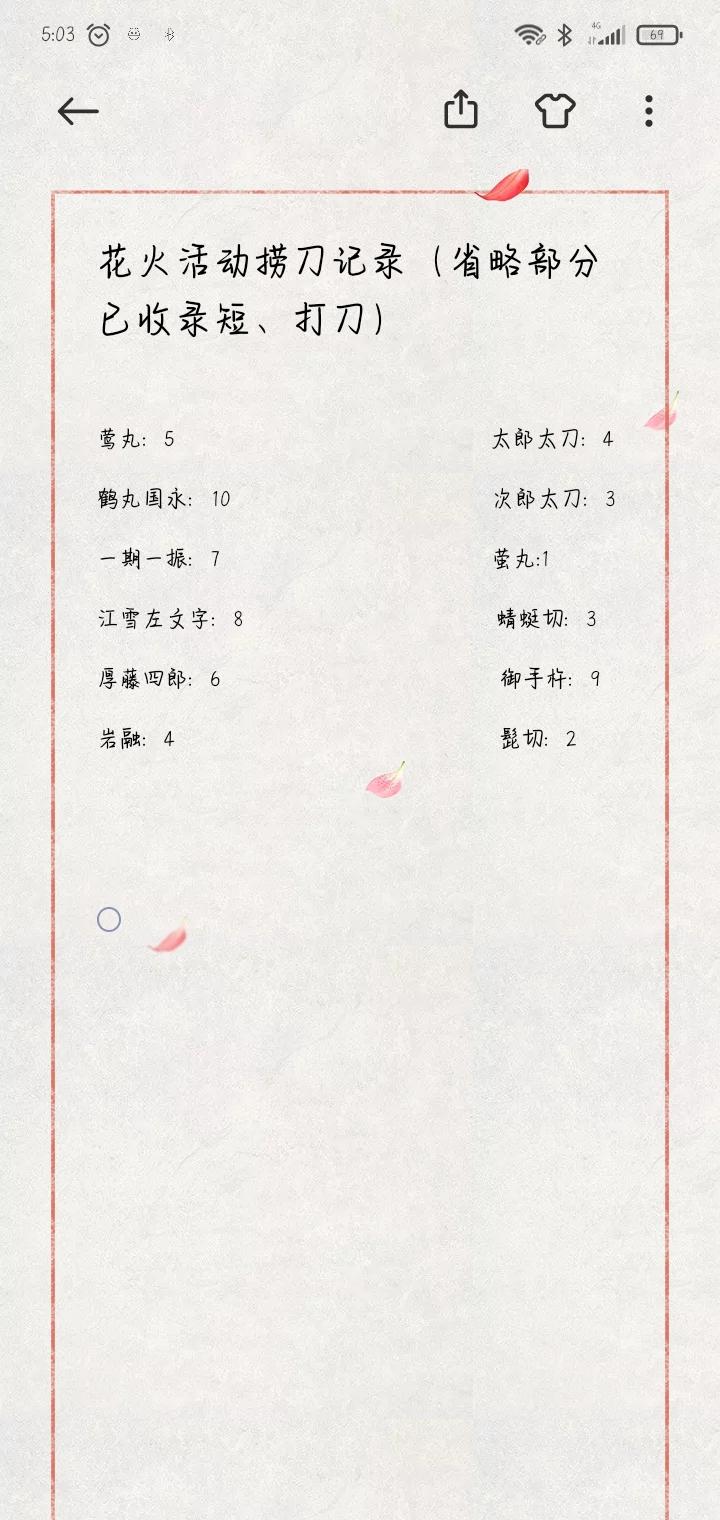 5:03
4G
69
花火活动捞刀记录（省略部分
已收录短、打刀）
莺丸: 5
太郎太刀: 4
鹤丸国永: 10
次郎太刀: 3
一期一振: 7
萤丸:1
江雪左文字: 8
蜻蜓切: 3
厚藤四郎: 6
御手杵: 9
岩融: 4
髭切: 2